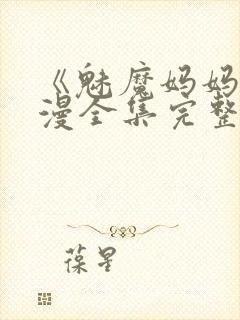 《魅魔妈妈
漫全集完整
葆星